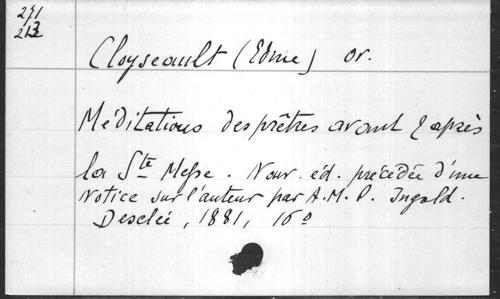 271
213
Cloyseault (Edme) or.
Méditations des prêtres avant & après
la Ste Messe. Nouv. éd. précédée d'une
Notice sur l'auteur par A.M.P. Ingold.
Desclée, 1881, 16o